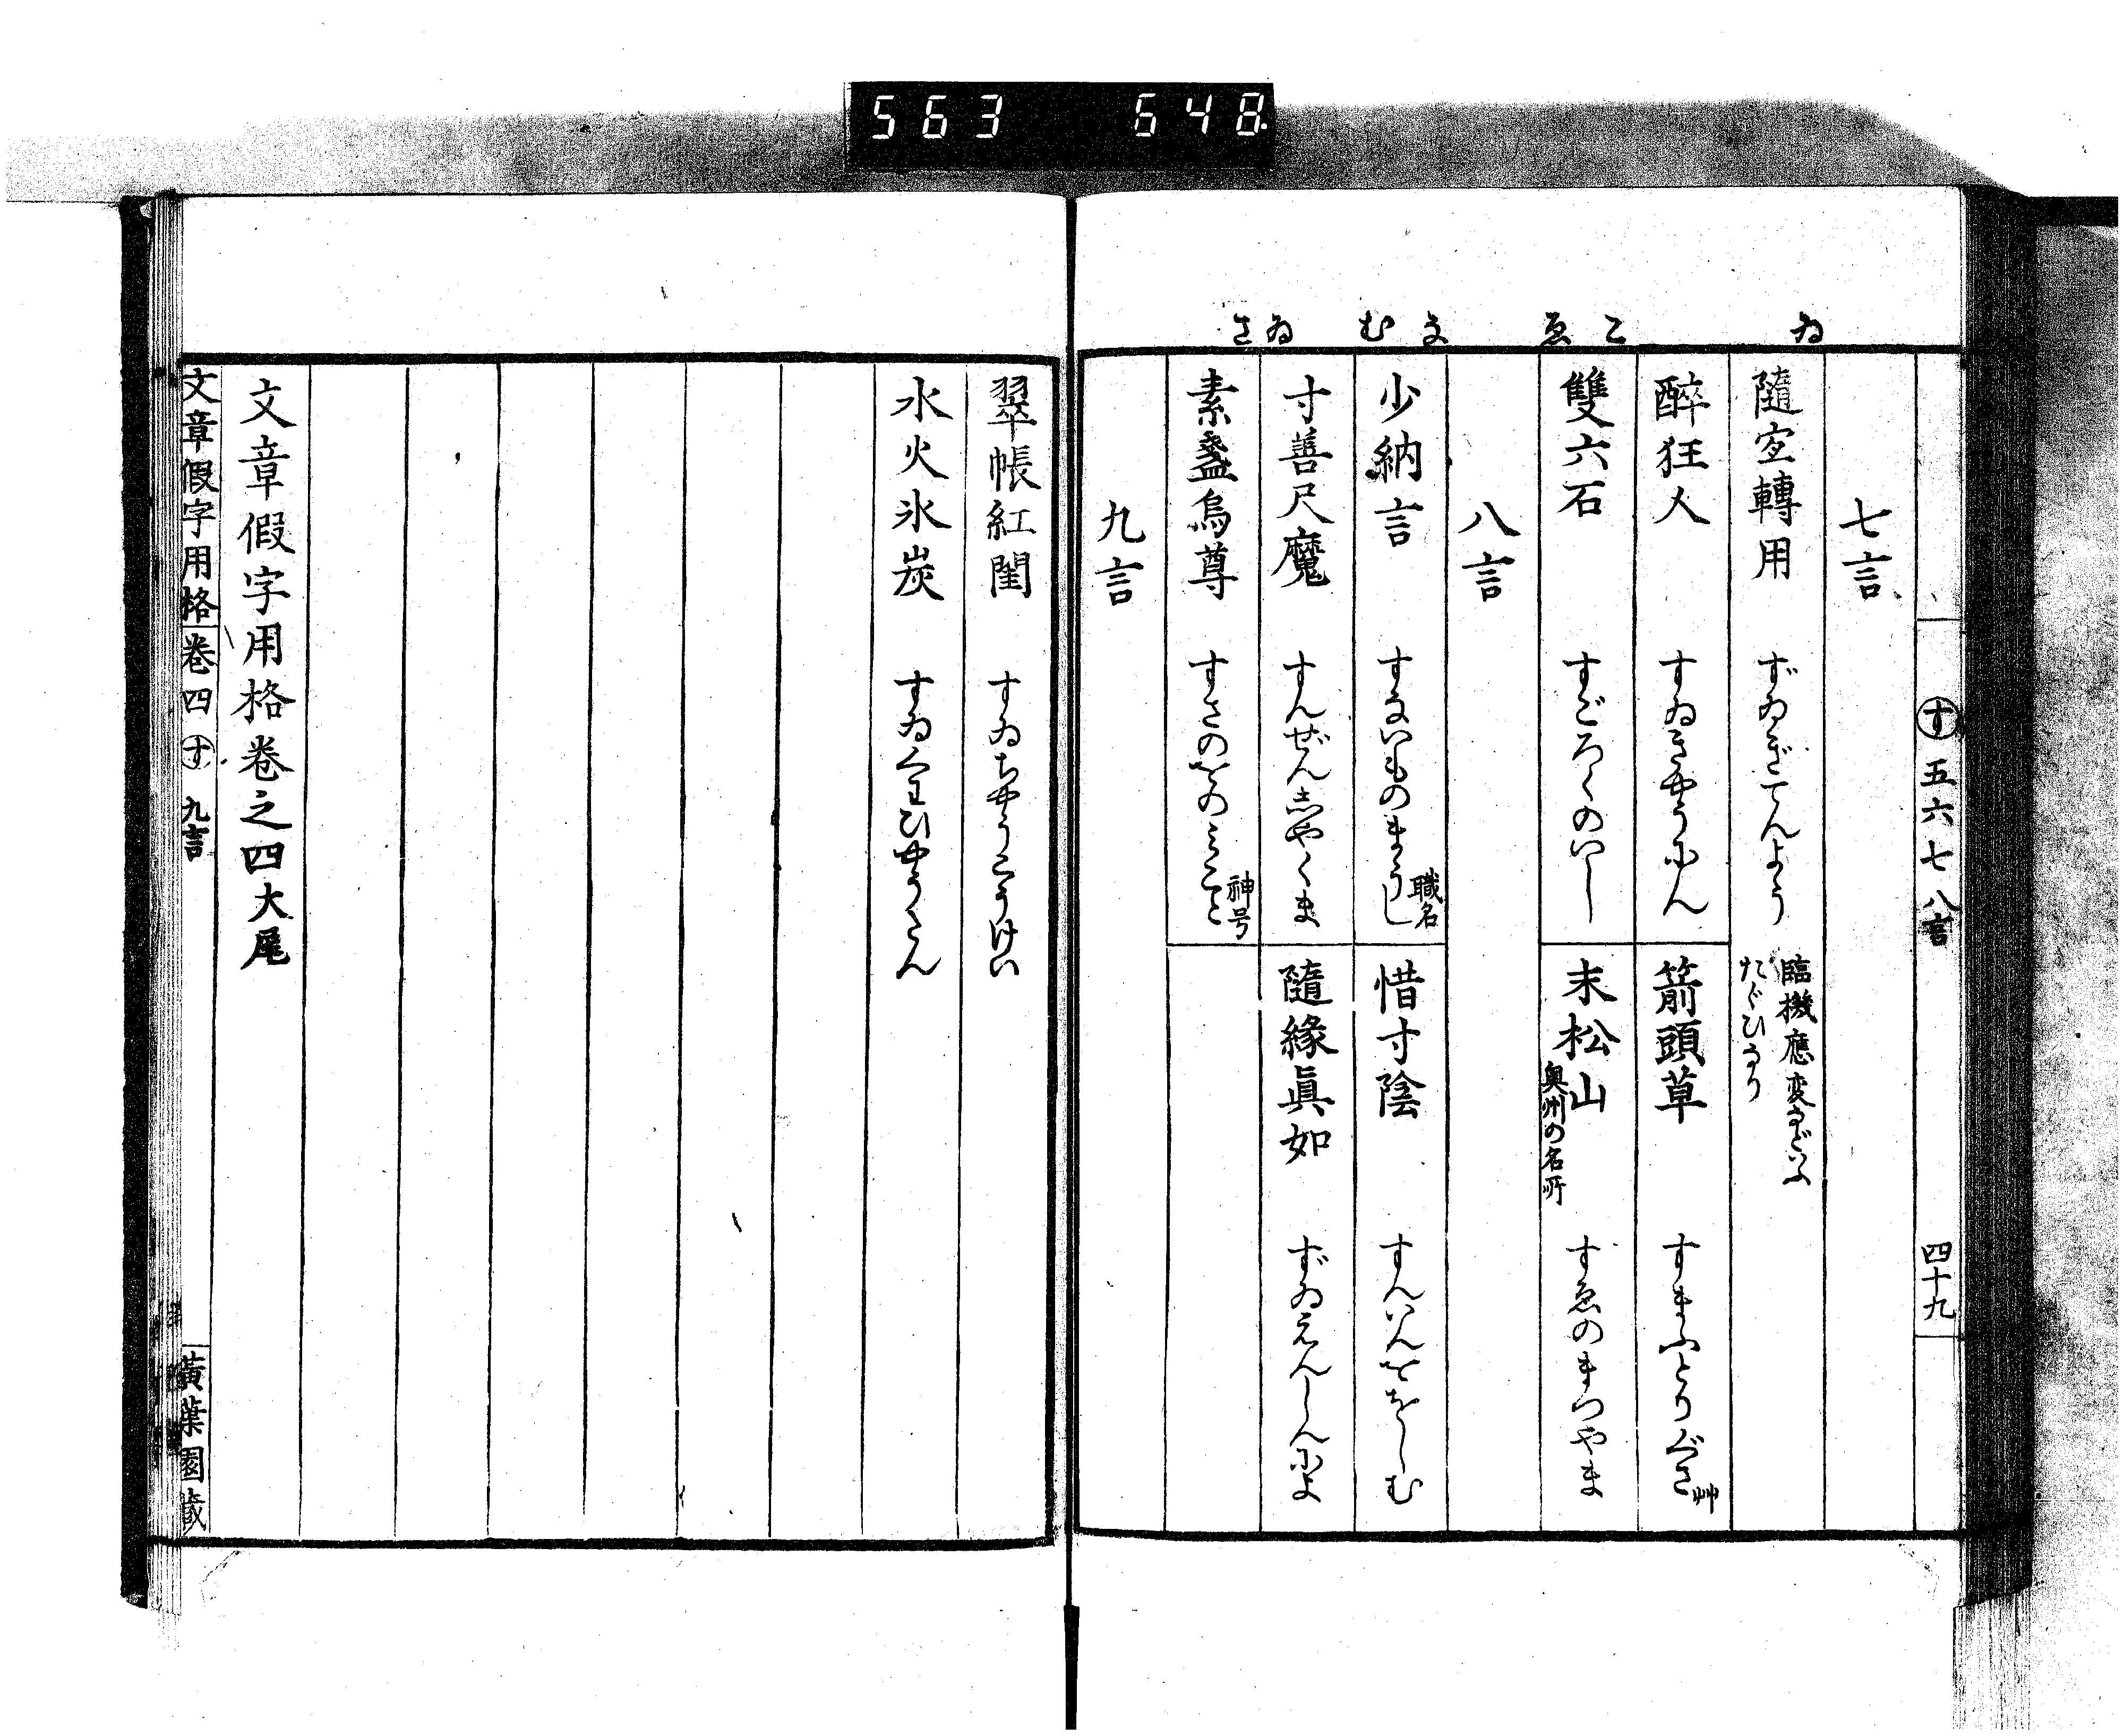 563 648
ゐ
こ ゑ
な む
ゐ さ
す 五六七八言 四十九
七言
隨宜轉用 ずゐぎてんよう 臨機應変などいふ
たぐひなり
醉狂人 すゐきやうにん
箭頭草 すまふとりぐさ 艸
雙六石 すごろくのいし
末松山 奥州の名所 すゑのまつやま
八言
少納言 すないものまうし 職名
惜寸陰 すんいんををしむ
寸善尺魔 すんぜんしやくま
隨緣眞如 ずゐえんしんによ
素盞烏尊 すさのをのみこと 神号
九言
翠帳紅閨 すゐちやうこうけい
水火氷炭 すゐくわひやうさん
文章假字用格卷之四大尾
文章假字用格 卷四 す 九言 黃葉園藏